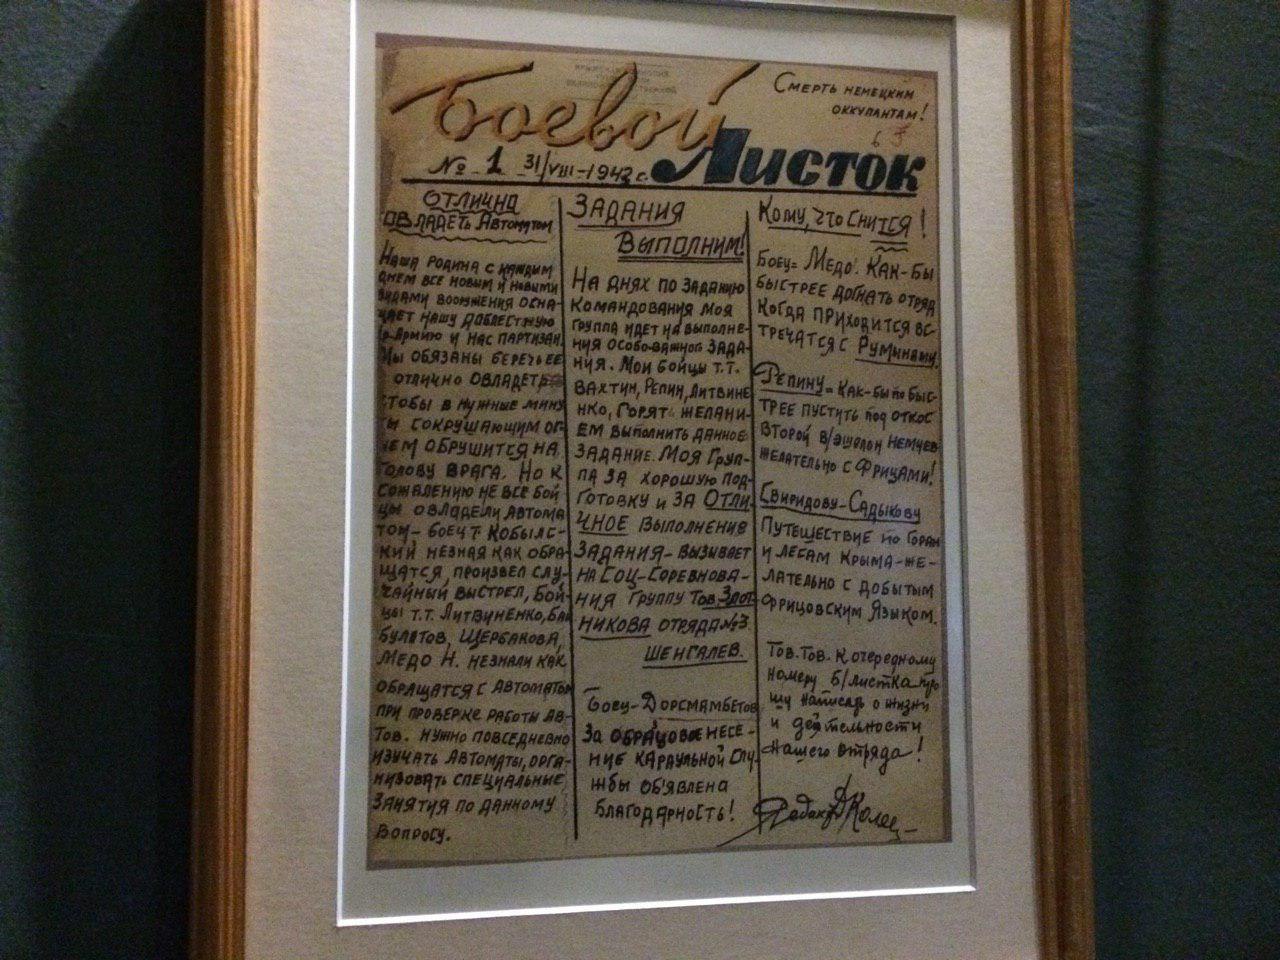 Боевой Листок
Смерть немецким
оккупантам!
№ 1 31/VIII-1942 г.
Отлично
овладеть Автоматом
Наша родина с каждым
днем все новым и новыми
видами вооружения осна-
щает нашу доблестную
Армию и нас партизан.
Мы обязаны беречь ее
отлично овладеть
чтобы в нужные мину
ты сокрушающим ог-
нем обрушится на
голову врага. Но к
сожалению не все бой
цы овладели автома
том - боец т. Кобылс-
кий незная как обра-
щатся, произвел слу-
чайный выстрел, бой-
цы т.т. Литвиненко, Бай
булатов, Щербакова,
Медо Н. незнали как
обращатся с автоматом
при проверке работы ав-
тов. нужно повседневно
изучать автоматы, орга-
низовать специальные
занятия по данному
вопросу.
Задания
Выполним!
На днях по заданию
командования моя
группа идет на выполне-
ния особо-важного зада-
ния. Мои бойцы т.т.
Вахтин, Репин, Литвине
нко, горят желани-
ем выполнить данное
задание. Моя груп-
па за хорошую под-
готовку и за отли-
чное выполнение
задания - вызывает
на соц-соревнова-
ния группу тов. Злот-
никова отряда №3.
Шенгалев.
Боец - Дорсмамбетов
За образцовое несе-
ние караульной слу-
жбы об'явлена
благодарность!
Кому, что снится!
Боец = Медо. Как-бы
быстрее догнать отряд
когда приходится вс-
тречатся с Румынами.
Репину = как-бы по быс-
трее пустить под откос
второй в/эшелон немцев
желательно с фрицами!
Свиридову - Садыкову
Путешествие по горам
и лесам Крыма - же-
лательно с добытым
фрицовским языком.
Тов. Тов. к очередному
номеру б/листка про
шу написать о жизни
и деятельности
нашего отряда!